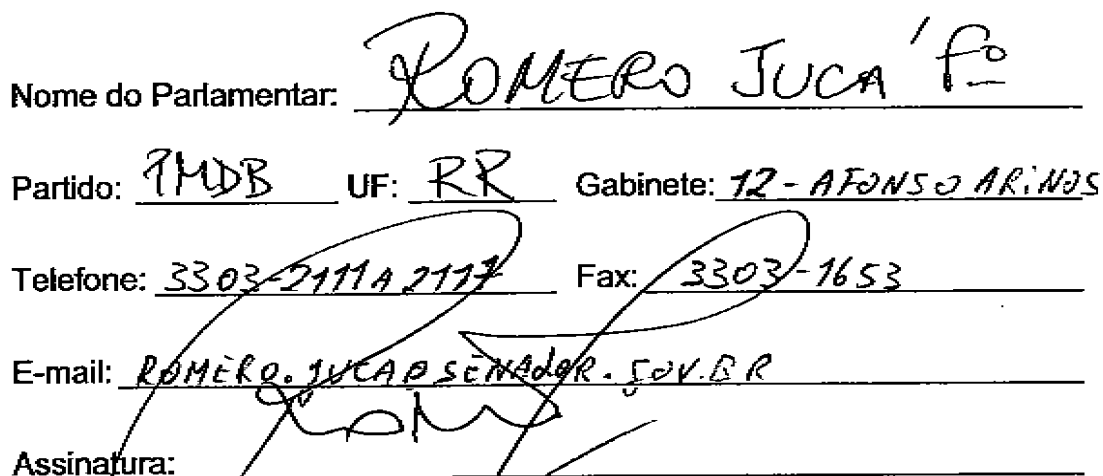 Nome do Parlamentar: ROMERO JUCÁ Fº
Partido: PMDB UF: RR Gabinete: 12 - AFONSO ARINOS
Telefone: 3303-2111 A 2117 Fax: 3303-1653
E-mail: ROMERO.JUCA@SENADOR.GOV.BR
Assinatura: